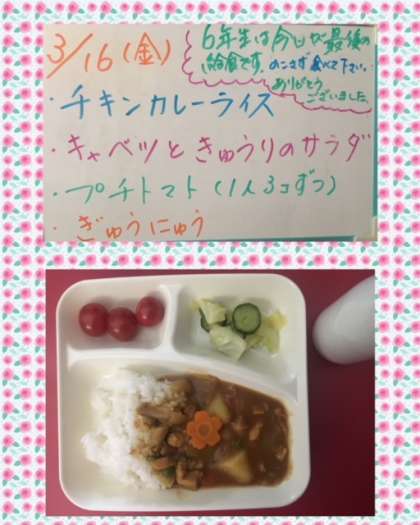 3/16(金)
6年生は今日が最後の
給食です。のこさず食べて下さい。
ありがとう
ございました。
・チキンカレーライス
・キャベツときゅうりのサラダ
・プチトマト(1人3コずつ)
・ぎゅうにゅう